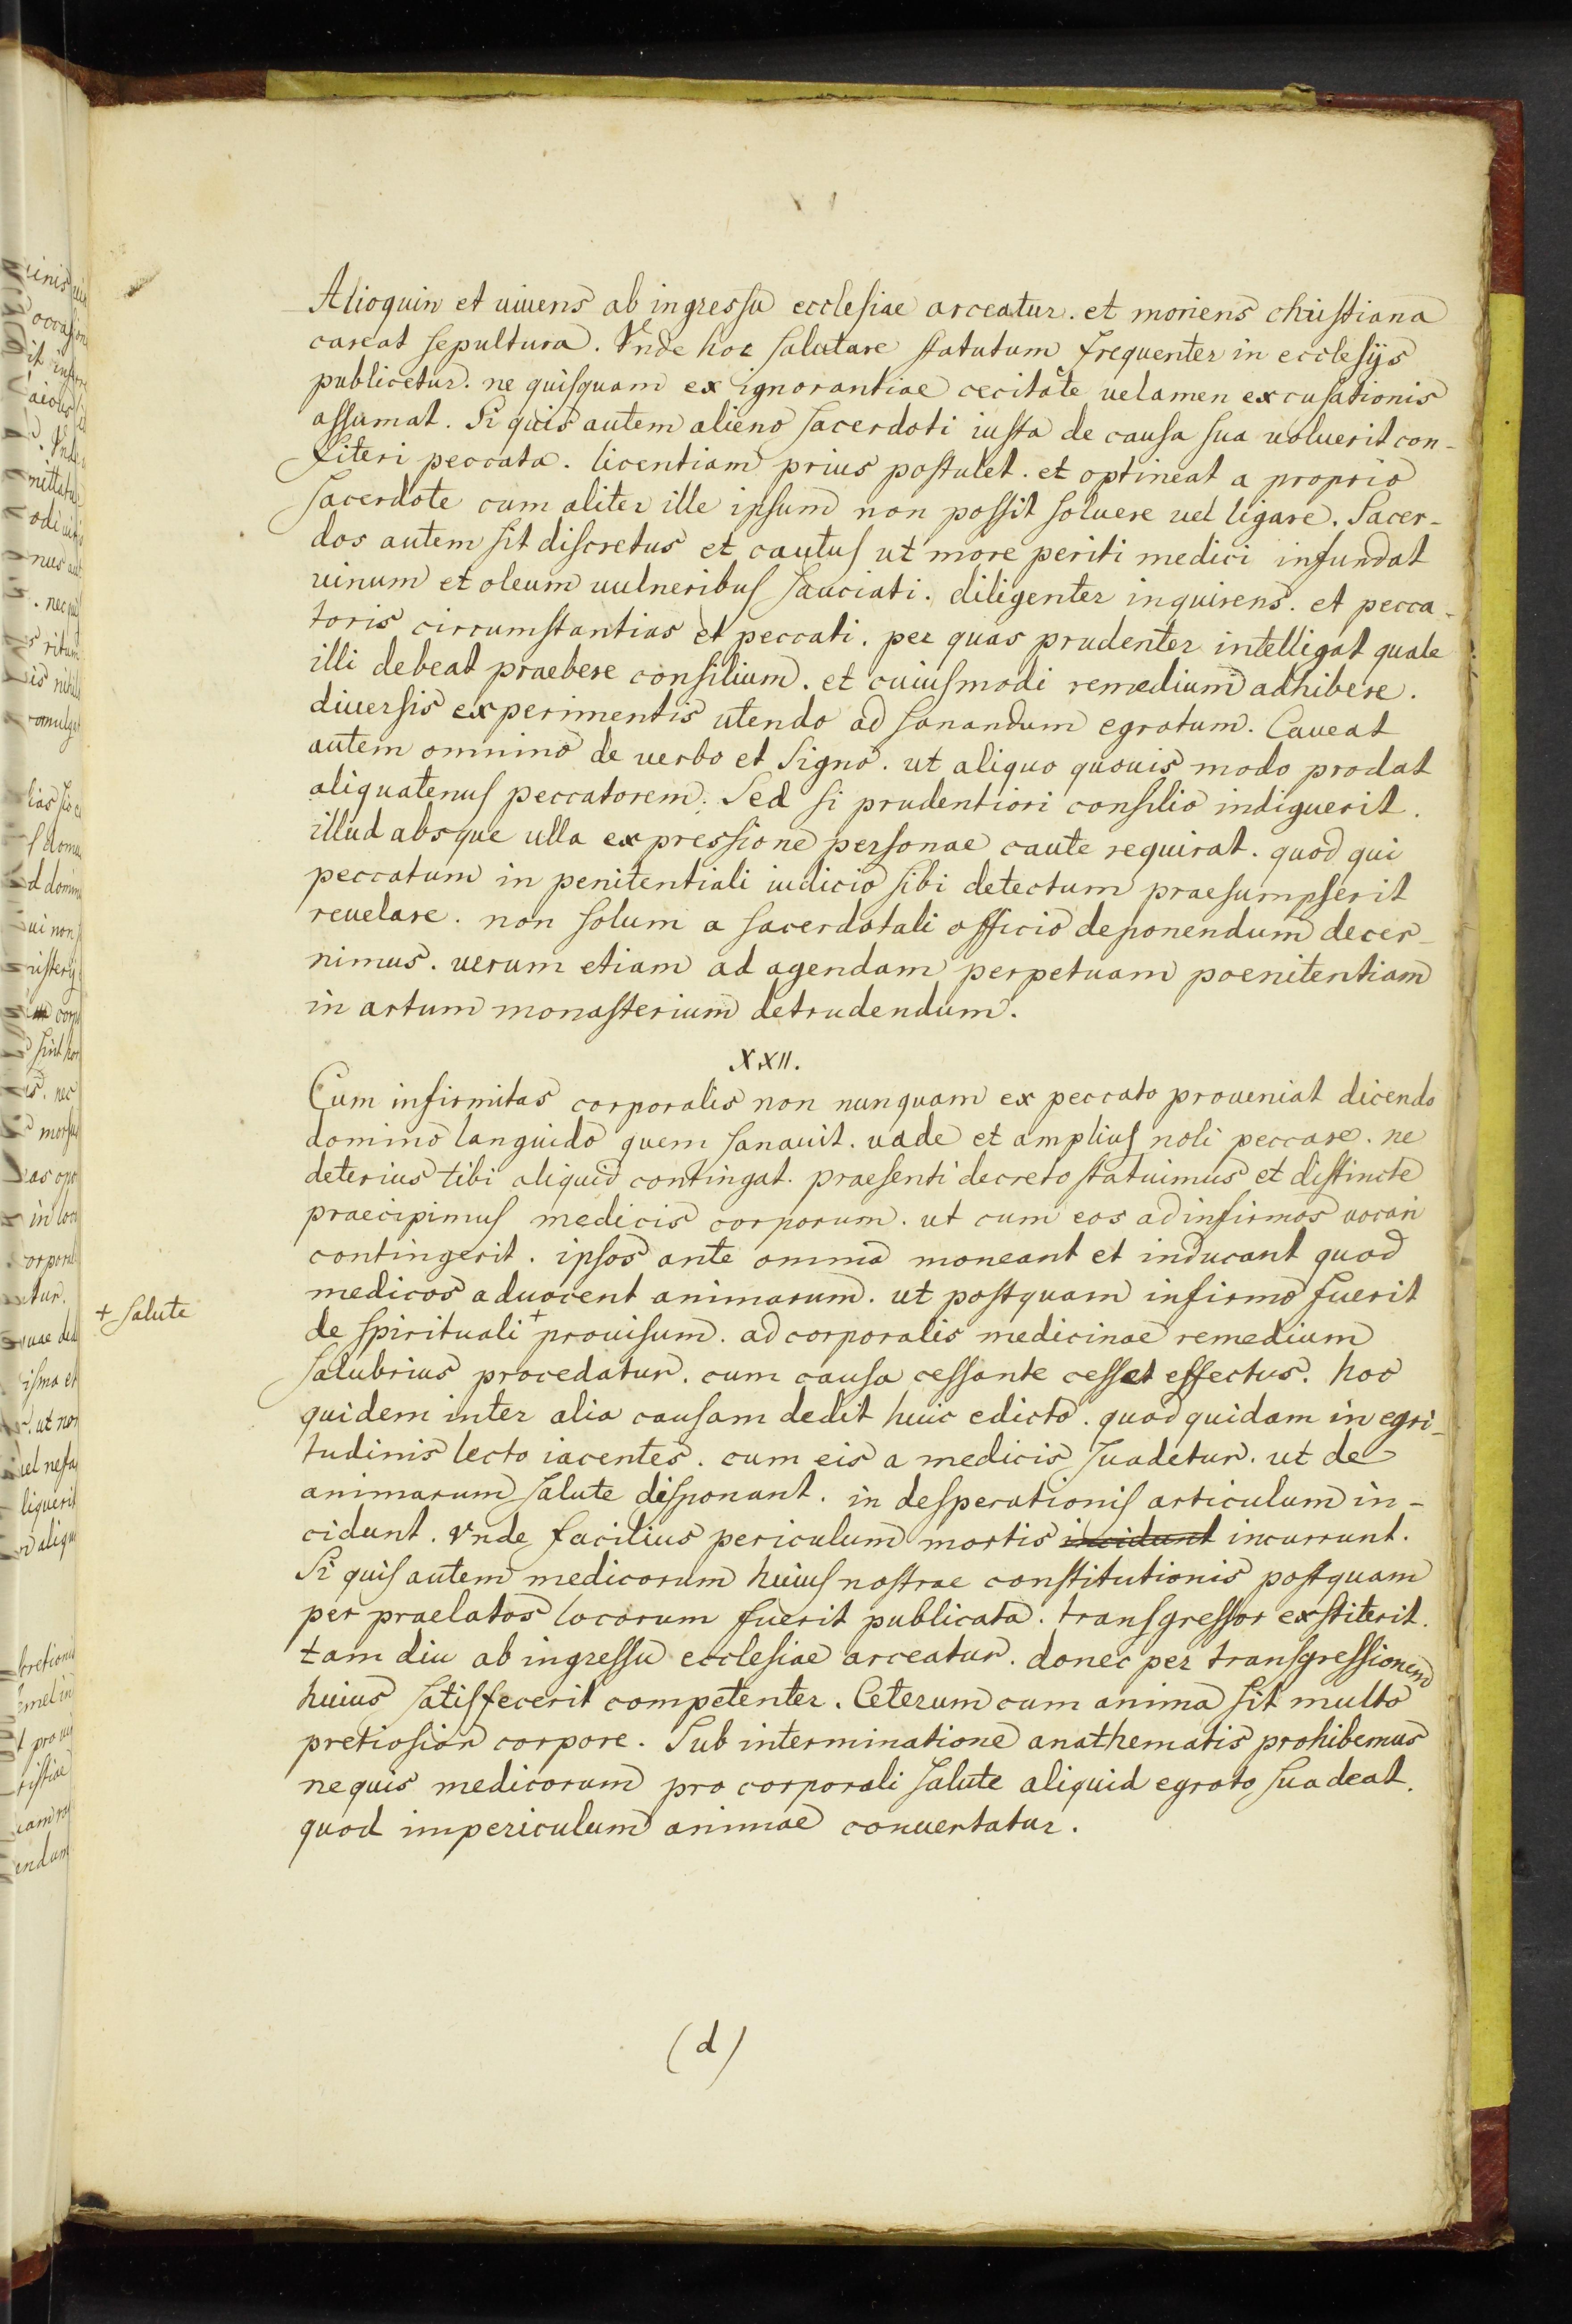 Alioquin et uiuens ab ingressu ecclesiae arceatur. et moriens christiana
careat sepultura. Vnde hoc salutare statutum frequenter in ecclesijs
publicetur. ne quisquam ex ignorantiae cecitate uelamen excusationis
assumat. Si quis autem alieno sacerdoti iusta de causa sua uoluerit con-
fiteri peccata. licentiam prius postulet. et optineat a proprio
sacerdote cum aliter ille ipsum non possit soluere uel ligare. Sacer-
dos autem sit discretus et cautus ut more periti medici infundat
uinum et oleum uulneribus sauciati. diligenter inquirens. et pecca-
toris circumstantias et peccati. per quas prudenter intelligat quale
illi debeat praebere consilium. et cuiusmodi remedium adhibere.
diuersis experimentis utendo ad sanandum egrotum. Caueat
autem omnino de uerbo et signo. ut aliquo quouis modo prodat
aliquatenus peccatorem. Sed si prudentiori consilio indiguerit.
illud absque ulla expressione personae caute requirat. quod qui
peccatum in penitentiali iudicio sibi detectum praesumpserit
reuelare. non solum a sacerdotali officio deponendum decer-
nimus. uerum etiam ad agendam perpetuam poenitentiam
in artum monasterium detrudendum.
XXII.
Cum infirmitas corporalis non nunquam ex peccato proueniat dicendo
domino languido quem sanauit. uade et amplius noli peccare. ne
deterius tibi aliquid contingat. praesenti decreto statuimus et distincte
praecipimus medicis corporum. ut cum eos ad infirmos uocari
contingerit. ipsos ante omnia moneant et inducant quod
medicos aduocent animarum. ut postquam infirmo fuerit
+ salute
de spirituali + prouisum. ad corporalis medicinae remedium
salubrius procedatur. cum causa cessante cesset effectus. hoc
quidem inter alia causam dedit huic edicto. quod quidam in egri-
tudinis lecto iacentes. cum eis a medicis suadetur. ut de
animarum salute disponant. in desperationis articulum in-
cidunt. Vnde facilius periculum mortis incidunt incurrunt.
Si quis autem medicorum huius nostrae constitutionis postquam
per praelatos locorum fuerit publicata. transgressor exstiterit.
tam diu ab ingressu ecclesiae arceatur. donec per transgressionem
huius satisfecerit competenter. Ceterum cum anima sit multo
pretiosior corpore. Sub interminatione anathematis prohibemus
nequis medicorum pro corporali salute aliquid egroto suadeat.
quod impericulum animae conuertatur.
(d)